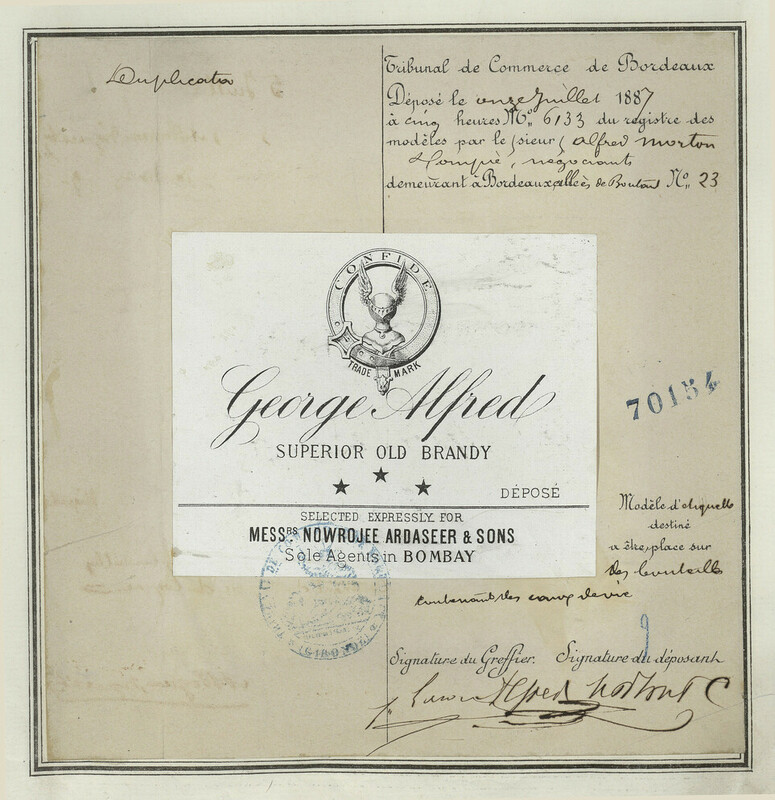 Duplicata
Tribunal de Commerce de Bordeaux
Déposé le onze Juillet 1887
à cinq heures No. 6133 du registre des
modèles par le sieur Alfred Morton
& Compie, négociants
demeurant à Bordeaux allées de Boutaut No. 23
CONFIDE
TRADE MARK
George Alfred
SUPERIOR OLD BRANDY
★ ★ ★
DÉPOSÉ
SELECTED EXPRESSLY FOR
MESSRS NOWROJEE ARDASEER & SONS
Sole Agents in BOMBAY
70154
Modèle d'étiquette
destiné
a être place sur
des bouteilles
contenant des eaux de vie
(GIRONDE)
Signature du Greffier. Signature du déposant
Alfred Morton & C